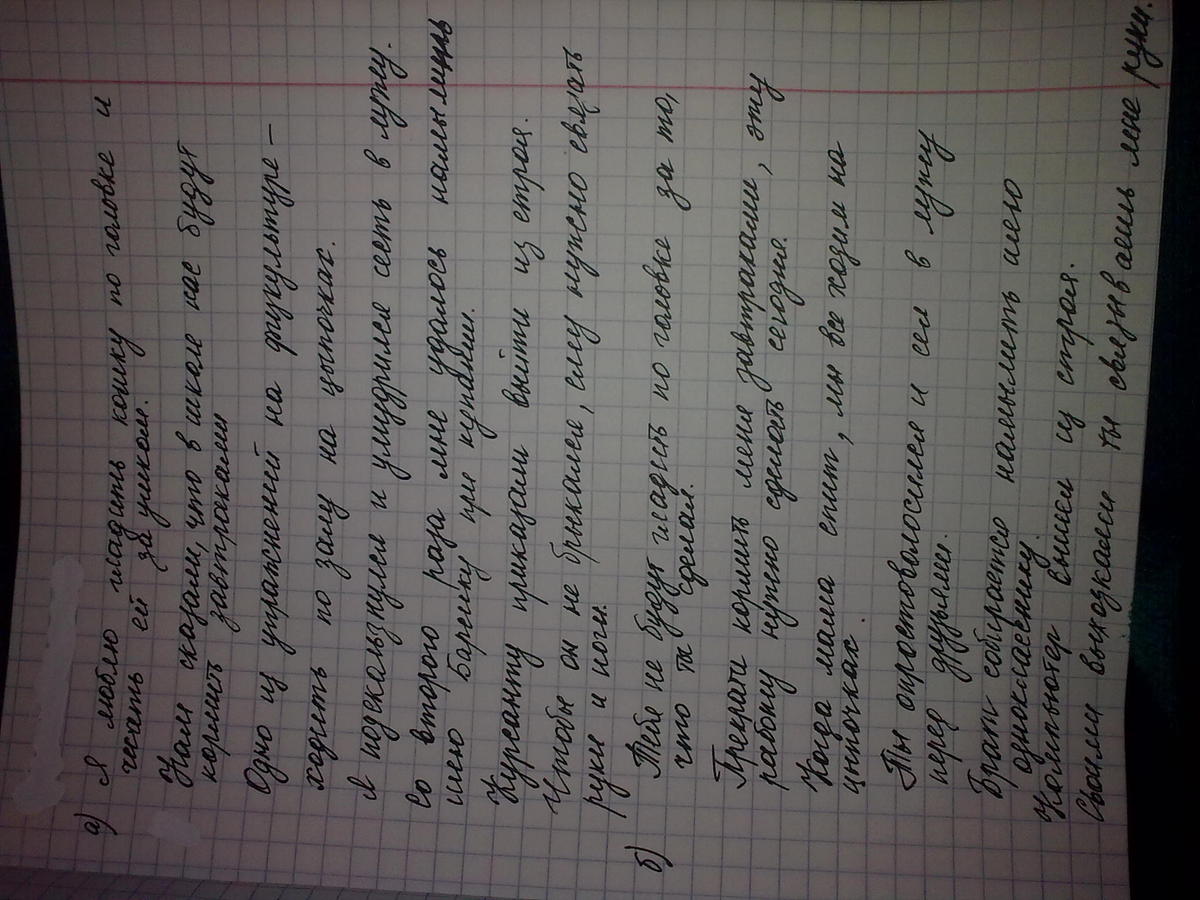 а) Я люблю гладить кошку по головке и
чесать ей за ушком.
Нам сказали, что в школе нас будут
кормить завтраками
Одно из упражнений на физкультуре –
ходить по залу на цыпочках.
Я подскользнулся и умудрился сесть в лужу.
Со второго раза мне удалось намылить
шею Барсику при купании.
Курсанту приказали выйти из строя.
Чтобы он не брыкался, ему нужно связать
руки и ноги.
б) Тебе не будут гладить по головке за то,
что ты сделал.
Прекрати кормить меня завтраками, эту
работу нужно сделать сегодня.
Когда мама спит, мы все ходим на
цыпочках.
Ты опростоволосился и сел в лужу
перед друзьями.
Брат собирается намылить шею
однокласснику.
Компьютер вышел из строя.
Своими выходками ты связываешь мне руки.